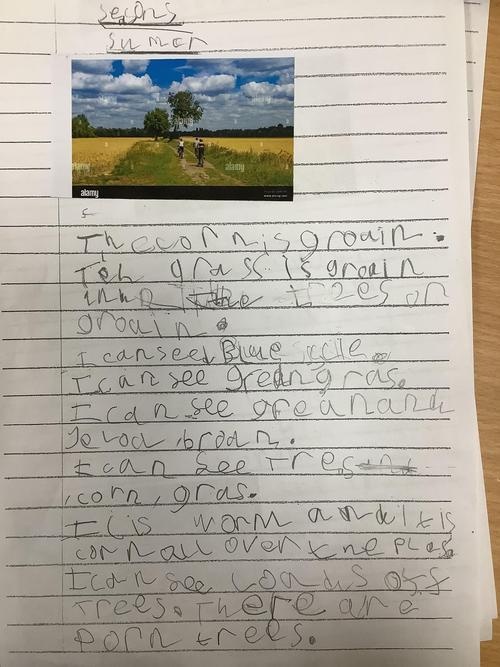 sesons
sumer
alamy
alamy
alamy
alamy
The corn is groain.
Teh grass is groain
the trees on
groain.
I can see Blue
I can see green gras.
I can see grean and
broan.
I can see Tres
,corn, gras.
It is worm and it is
corn all over the plas
I can see Loads off
Trees. There are
porn trees.